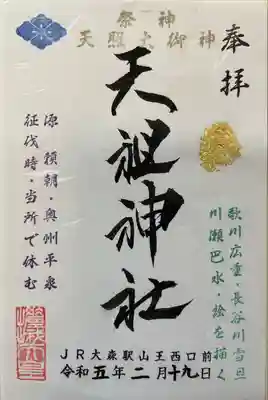 奉拝
祭神
天照大御神
天祖神社
源頼朝・奥州平泉
征伐時・当所で休む
歌川広重・長谷川雪旦
川瀬巴水・絵を描く
JR大森駅山王西口前
令和五年二月十九日